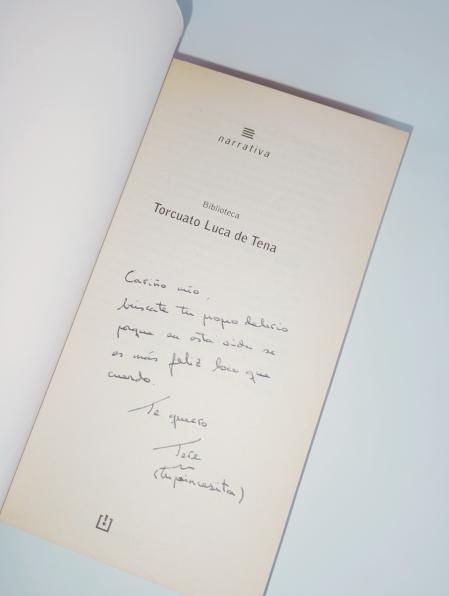 narrativa
Biblioteca
Torcuato Luca de Tena
Cariño mío,
búscate tu propio delirio
porque en esta vida se
es más feliz loco que
cuerdo.
Te quiero
Tere
(tu princesita)